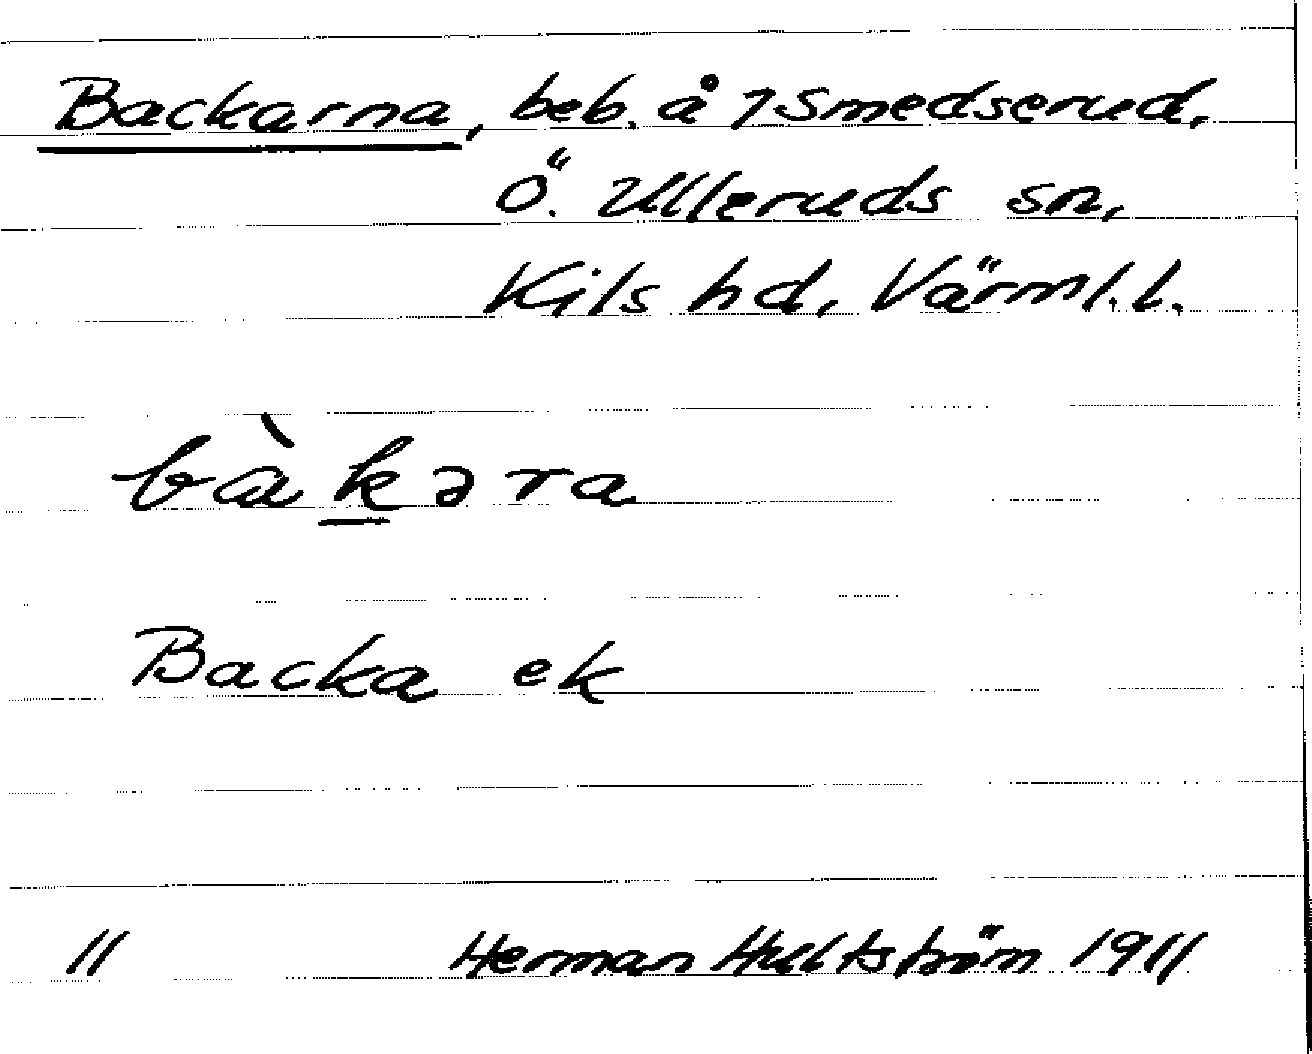 Backarna, beb. å 7 Smedserud,
Ö. Ulleruds sn,
Kils hd, Värml. l.
bàkəra
Backa ek
11 Herman Hultström 1911